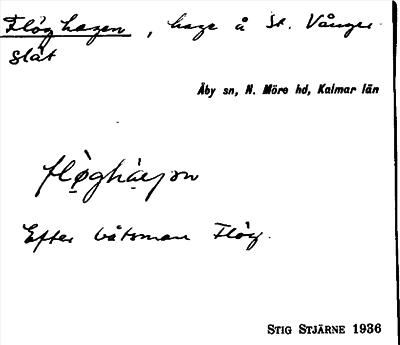 Flöghagen, hage å St. Vånger-
slät
Åby sn, N. Möre hd, Kalmar län
Efter båtsman Flög.
STIG STJÄRNE 1936